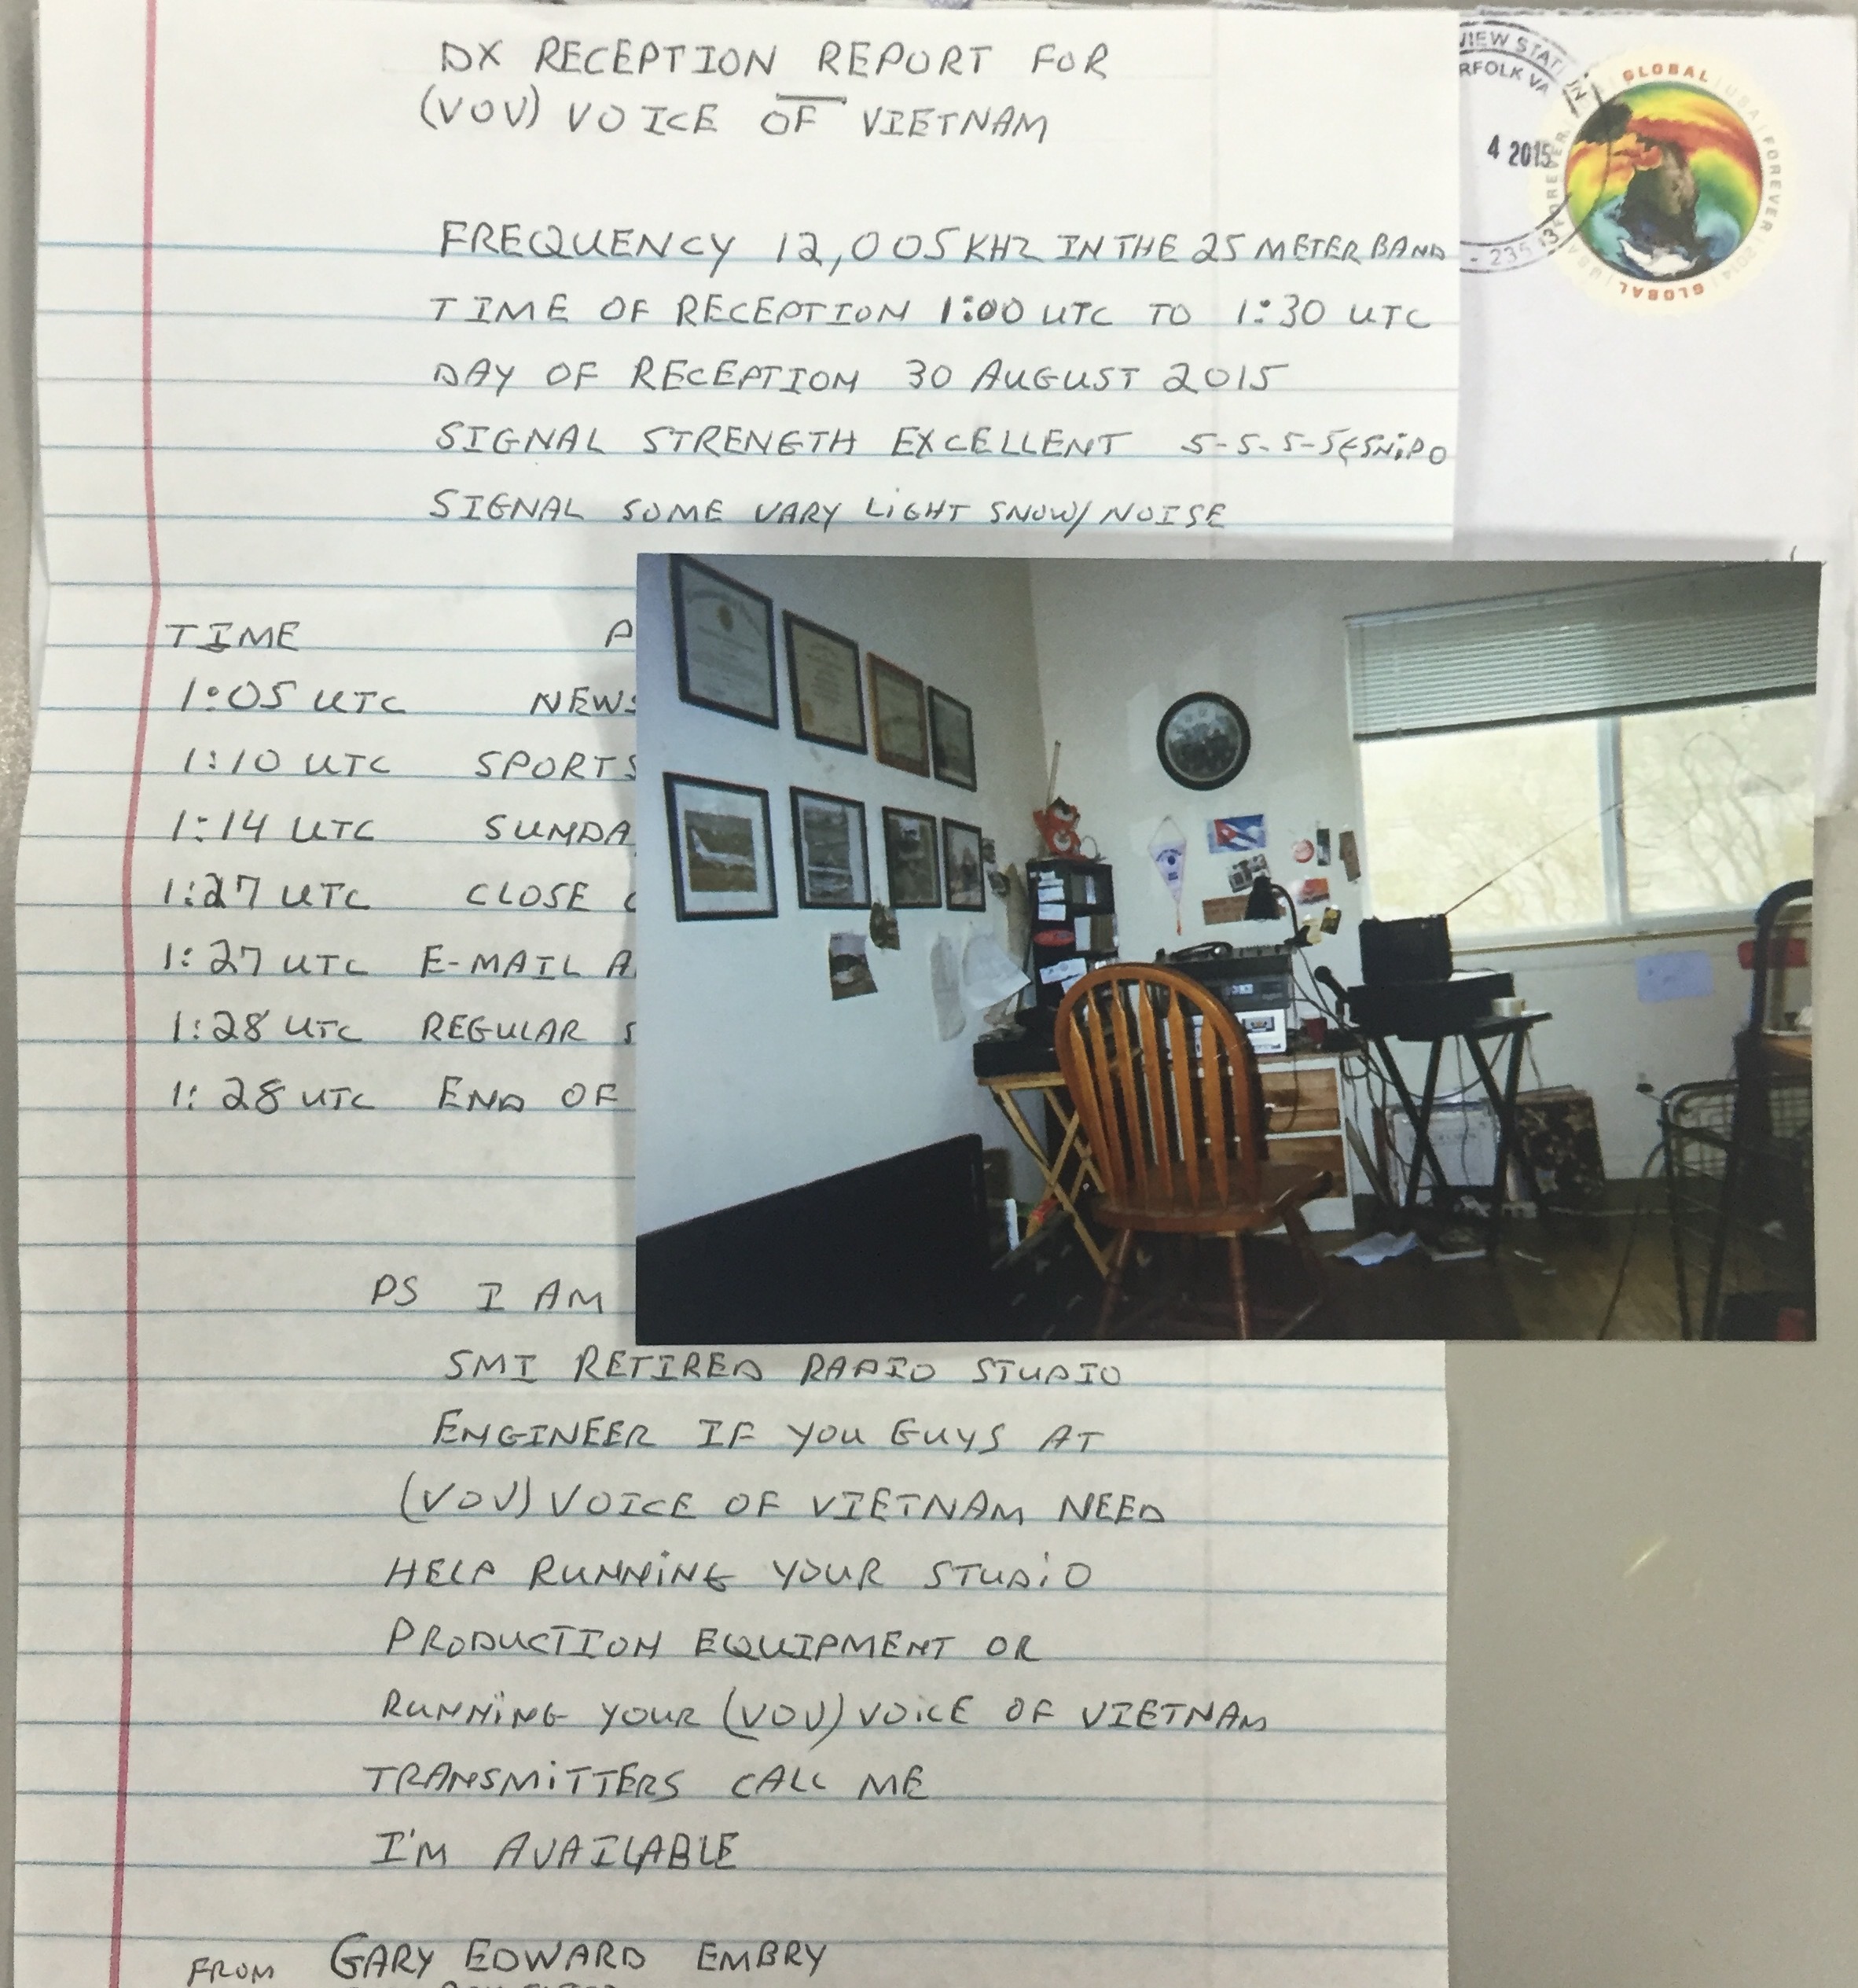 DX RECEPTION REPORT FOR
(VOV) VOICE OF VIETNAM
FREQUENCY 12,005 KHZ IN THE 25 METER BAND
TIME OF RECEPTION 1:00 UTC TO 1:30 UTC
DAY OF RECEPTION 30 AUGUST 2015
SIGNAL STRENGTH EXCELLENT 5-5-5-5
SIGNAL SOME VARY LIGHT SNOW/NOISE
TIME
1:05 UTC NEWS
1:10 UTC SPORTS
1:14 UTC SUNDA
1:27 UTC CLOSE
1:27 UTC E-MAIL A
1:28 UTC REGULAR S
1:28 UTC END OF
PS I AM
SMI RETIRED RADIO STUDIO
ENGINEER IF YOU GUYS AT
(VOV) VOICE OF VIETNAM NEED
HELP RUNNING YOUR STUDIO
PRODUCTION EQUIPMENT OR
RUNNING YOUR (VOV) VOICE OF VIETNAM
TRANSMITTERS CALL ME
I'M AVAILABLE
FROM GARY EDWARD EMBRY
VIEW STATION
RFOLK VA
4 2015
GLOBAL USA FOREVER 2014 GLOBAL USA FOREVER